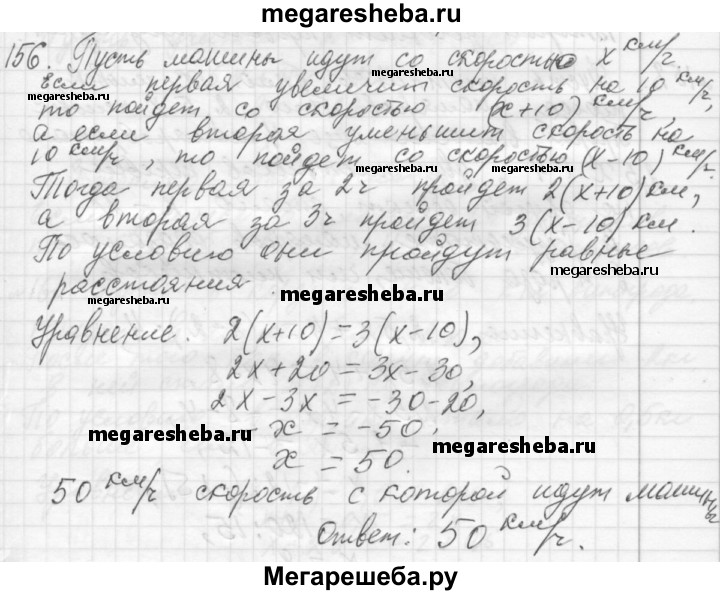 megaresheba.ru
156. Пусть машины идут со скоростью x км/г.
megaresheba.ru
Если первая увеличит скорость на 10 км/г,
megaresheba.ru
то пойдет со скоростью (x+10) км/г,
megaresheba.ru
а если вторая уменьшит скорость на
10 км/г, то пойдет со скоростью (x-10) км/г.
megaresheba.ru megaresheba.ru
Тогда первая за 2ч пройдет 2(x+10) км,
а вторая за 3ч пройдет 3(x-10) км.
megaresheba.ru megaresheba.ru
По условию они пройдут равные
megaresheba.ru
расстояния.
megaresheba.ru megaresheba.ru
Уравнение. 2(x+10)=3(x-10),
2x+20 = 3x-30,
2x-3x = -30-20,
-x = -50,
megaresheba.ru megaresheba.ru
x = 50.
50 км/г скорость с которой идут машины
Ответ: 50 км/г.
Мегарешеба.ру